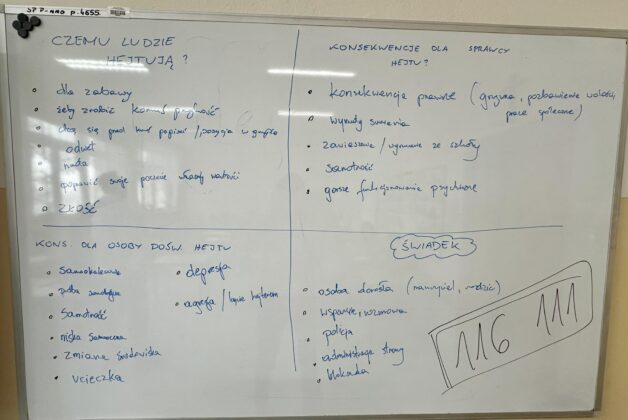 SP P-NAD p. 4655.
CZEMU LUDZIE
HEJTUJĄ?
dla zabawy
żeby zrobić komuś przykrość
chcą się przed kimś popisać / pozycja w grupie
odwet
nuda
poprawić swoje poczucie własnej wartości
ZŁOŚĆ
KONSEKWENCJE DLA SPRAWCY
HEJTU?
konsekwencje prawne (grzywna, pozbawienie wolności,
prace społeczne)
wyrzuty sumienia
zawieszenie / wyrzucenie ze szkoły
samotność
gorsze funkcjonowanie psychiczne
KONS. DLA OSOBY DOŚW. HEJTU
samookaleczenie
próba samobójcza
samotność
niska samoocena
zmiana środowiska
ucieczka
depresja
agresja / bycie hejterem
ŚWIADEK
osoba dorosła (nauczyciel, rodzic)
wsparcie, rozmowa
policja
administracja strony
blokada
116 111